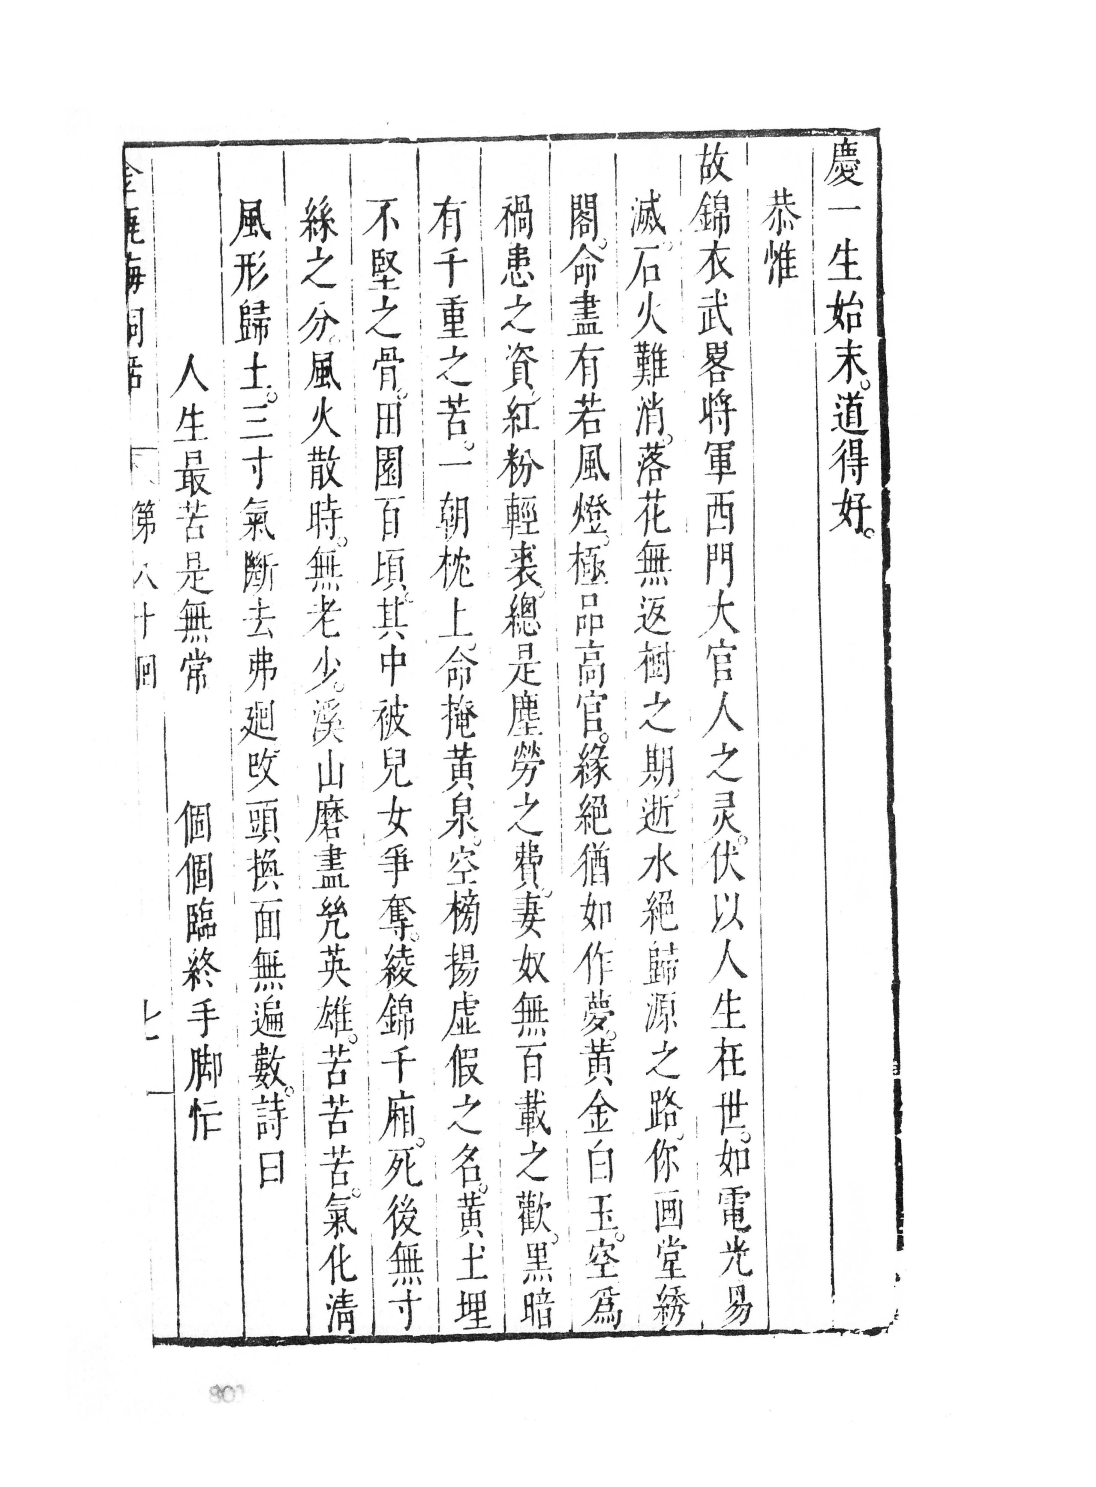 慶一生始末。道得好。
恭惟
故錦衣武畧將軍西門大官人之灵。伏以人生在世。如電光易
滅。石火難消。落花無返樹之期。逝水絕歸源之路。你画堂綉
閣。命盡有若風燈。極品高官。緣絕猶如作夢。黃金白玉。空爲
禍患之資。紅粉輕裘。總是塵勞之費。妻奴無百載之歡。黑暗
有千重之苦。一朝枕上。命掩黃泉。空榜揚虛假之名。黃土埋
不堅之骨。田園百頃。其中被兒女爭奪。綾錦千廂。死後無寸
絲之分。風火散時。無老少。溪山磨盡㡬英雄。苦苦苦。氣化清
風形歸土。三寸氣斷去弗廻。改頭換面無遍數。詩曰
人生最苦是無常　個個臨終手脚忙
金瓶梅詞話　第八十回　七